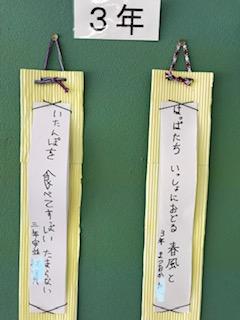 3年
はっぱたち いっしょにおどる 春風と
3年 まつおか
いたんぽを 食べてすっぱい たまらない
三年